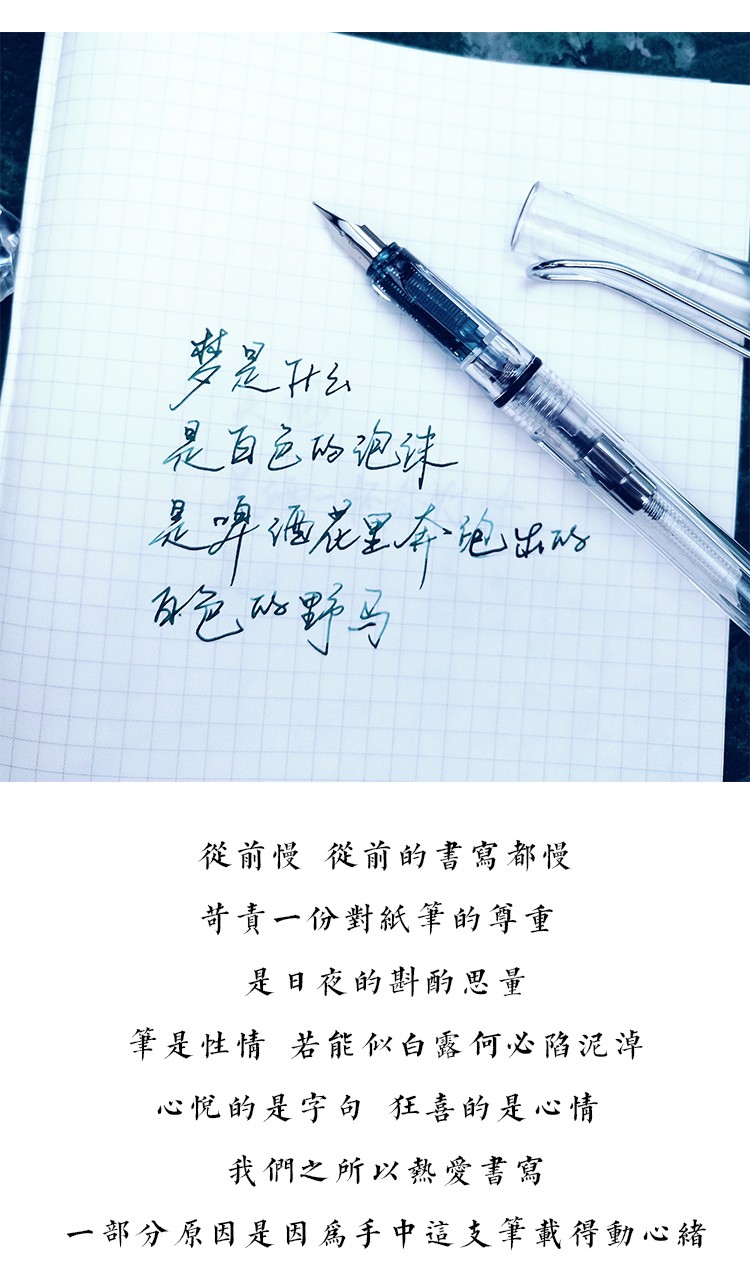 梦是什么
是白色的泡沫
是啤酒花里奔跑出的
白色的野马
從前慢 從前的書寫都慢
苛責一份對紙筆的尊重
是日夜的斟酌思量
筆是性情 若能似白露何必陷泥淖
心悅的是字句 狂喜的是心情
我們之所以熱愛書寫
一部分原因是因爲手中這支筆載得動心緒